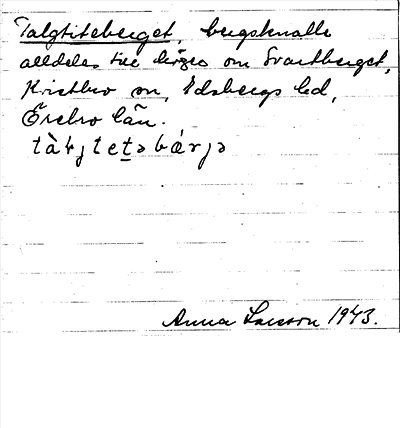 Talgtiteberget, bergsknalle
alldeles till höger om Svartberget,
Kristbro sn, Edsbergs hd,
Örebro län.
Anna Larsson 1943.